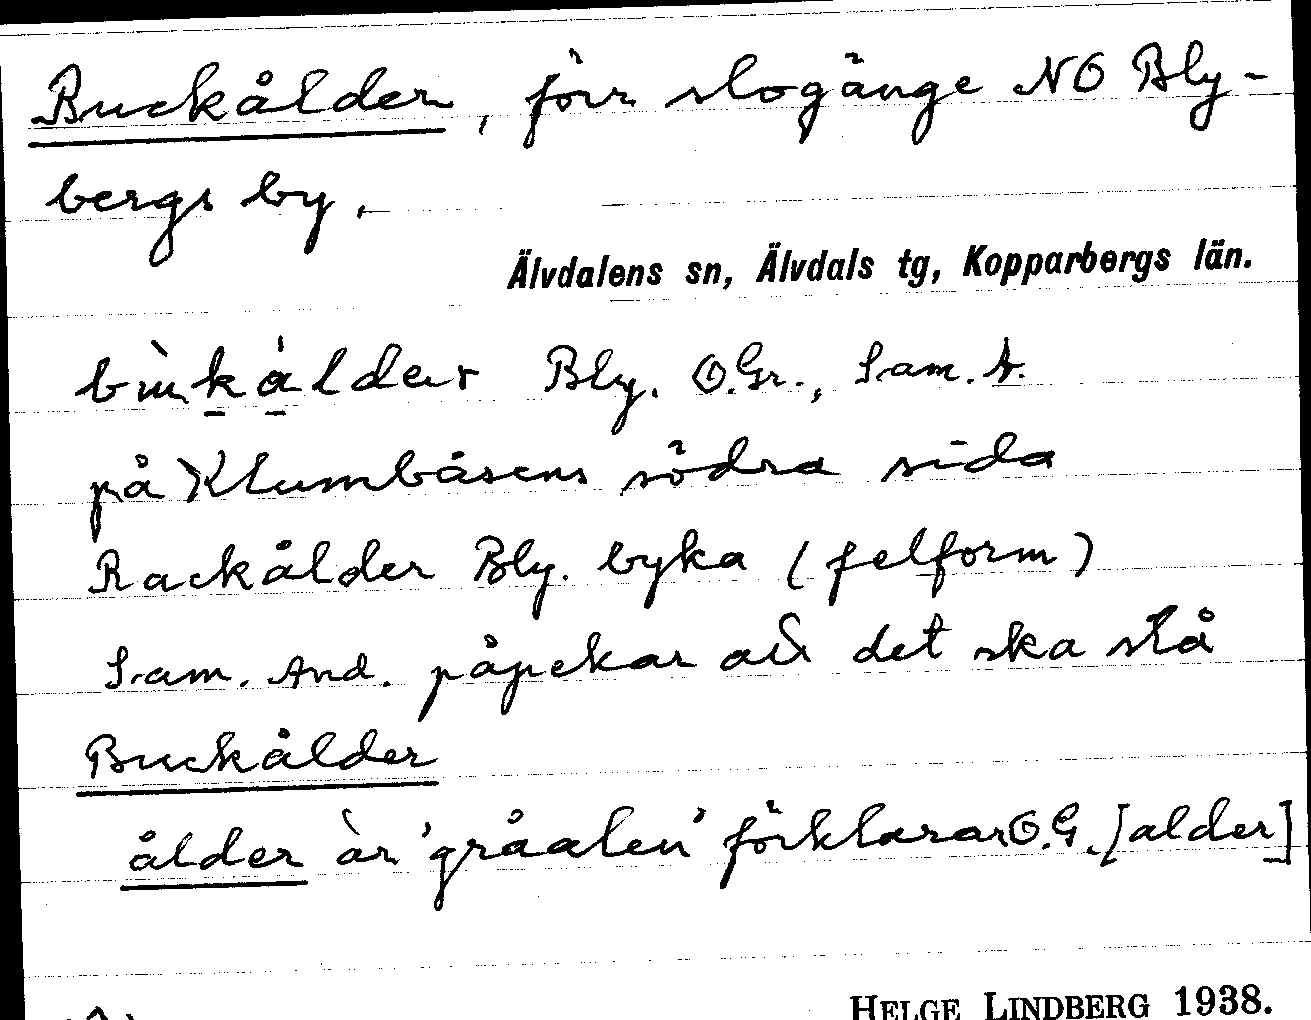 Buckålder, förr slogänge NO Bly-
bergs by.
Älvdalens sn, Älvdals tg, Kopparbergs län.
Bly. O.Gr., Sam. A.
på Klumbåsens södra sida
Rackålder Bly. byka (felform)
Sam. And. påpekar att det ska stå
Buckålder
ålder är 'gråalen' förklarar O.G. [alder]
HELGE LINDBERG 1938.